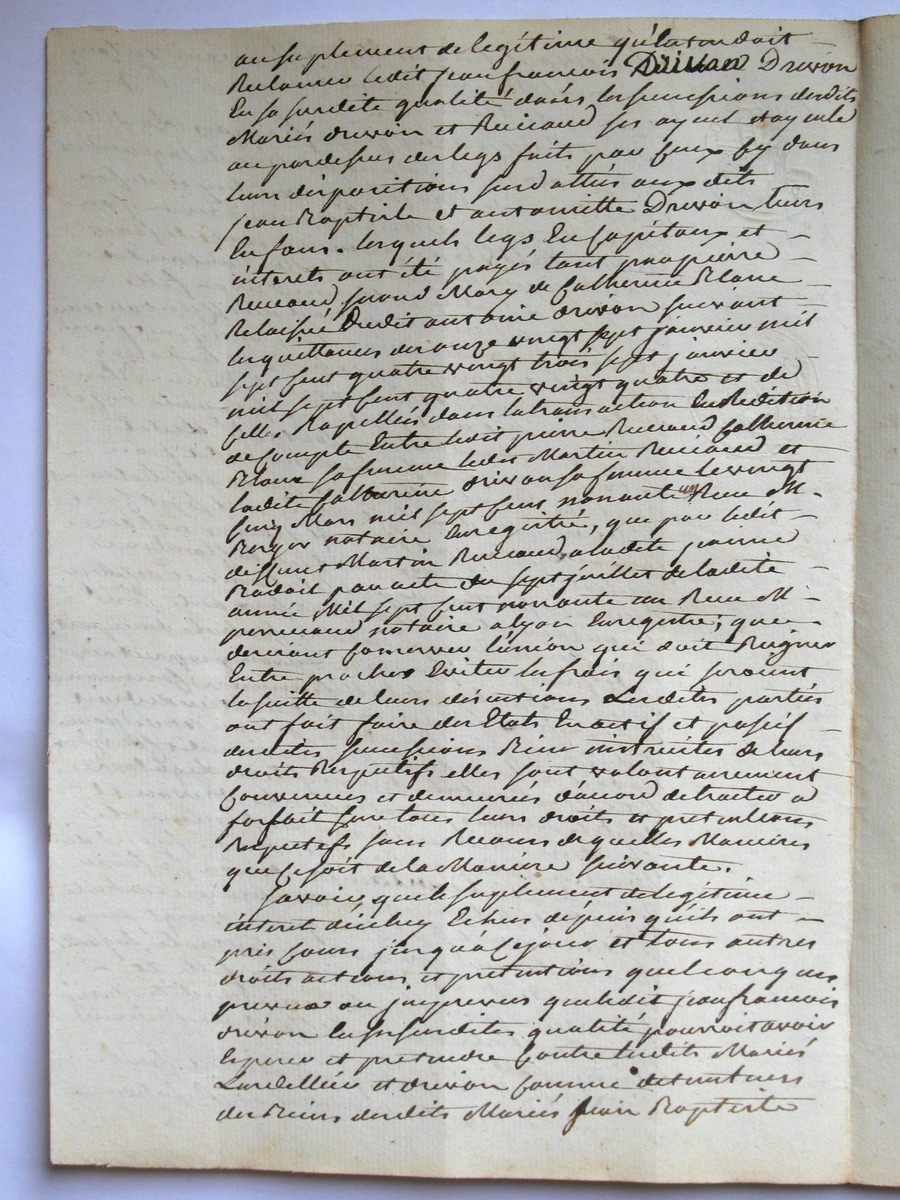 au suplement de legitime qu'la tondoit
Reclamer ledit jean francois Drivon
En sa susdite qualité dans les successions desdits
Mariés drivon et Reivaud ses ayeul et ayeule
au par dessus des legs faits par Eux Ez dans
leurs dispositions susdattées aux dits
jean Baptiste et antoinette Drivon leurs
Enfans. lesquels legs En Capitaux et
interets ont été payés tant par pierre
Reivaud, second Mary de Catherine Blanc
Relaissée Dudit antoine drivon suivant
les quittances des onze vingt sept janvier mil
sept cent quatre vingt trois sept janvier
mil sept cent quatre vingt quatre et de
celle Rapellée dans la transaction En Redition
de compte Entre ledit pierre Reivaud Catherine
Blanc sa femme ledit Martin Reivaud et
ladite Catherine drivon sa femme le vingt
cinq Mars mil sept cent nonante un Recue M.
notaire Enregistré, que par ledit
deffunt Martin Reivaud, a ladite jeanne
par acte du sept juillet de ladite
année Mil sept cent nonante un Recue M.
notaire a lyon Enregistré; que
desirant conserver l'union qui doit Regner
Entre proches Eviter les frais qui seroient
la suitte de leurs discutions Lesdites parties
ont fait faire des Etats En actif et passif
desdites successions Bien instruites de leurs
droits Respectifs elles sont volontairement
Convenues et demeurées d'acord de traiter a
forfait sur tous leurs droits et pretentions
Respectifs sans Recours de quelles Manieres
que ce soit de la Maniere suivante.
Savoir, que le suplement de legitime
interet d'icelux Echus depuis qu'ils ont
pris cours jusqu'a ce jour et tous autres
droits actions et pretentions quelconques
prevus ou jmprevus que ledit jean francois
drivon En sa susdites qualité pourroit avoir
Esperer et pretendre Contre lesdits Mariés
et drivon comme detenteurs
des Biens desdits Mariés Jean Baptiste